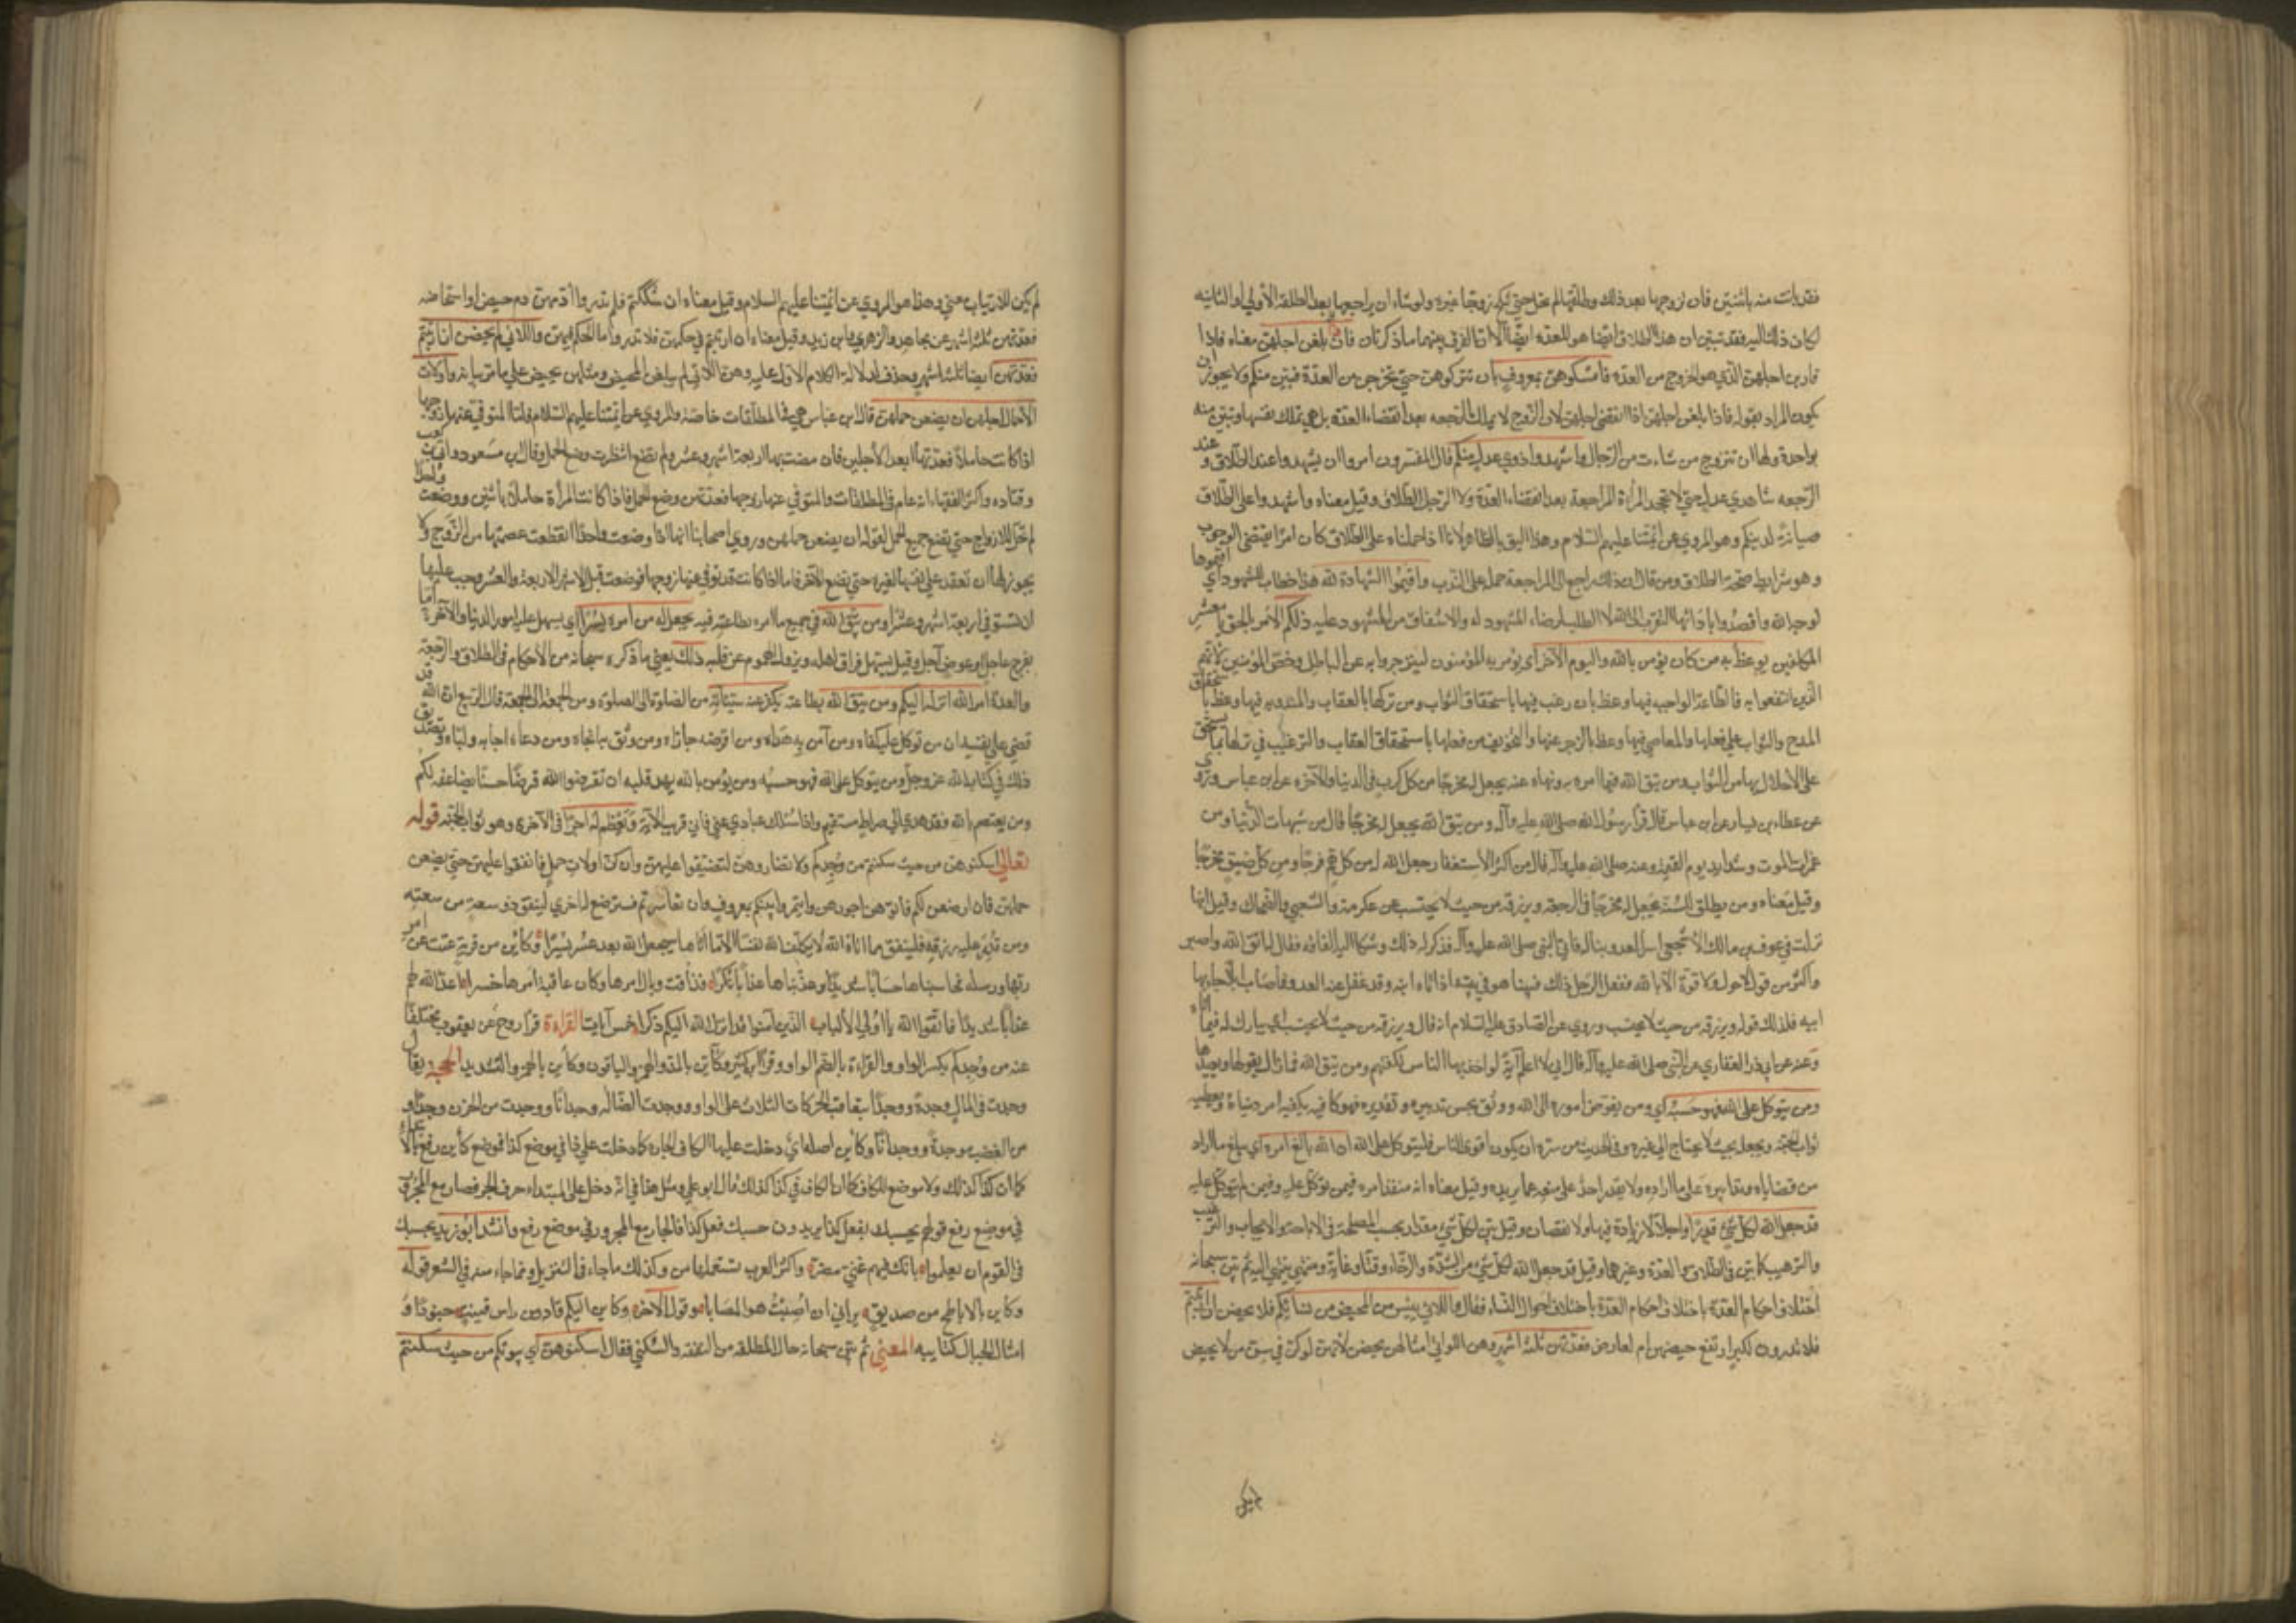 فقد بانت منه باثنتين فان تزوجها بعد ذلك وطلقها لم تحل حتى تنكح زوجا غيره ولو شاء ان يراجعها بعد الطلقة الأولى او الثانية
لكان ذلك اليه فقد تبين ان هذا الطلاق ايضا هو للعدة ايضا الا ان الفرق بينهما ما ذكرناه فاذا بلغن اجلهن معناه فاذا
قاربن اجلهن الذي هو الخروج من العدة فامسكوهن بمعروف بان تتركوهن حتى يخرجن من العدة فتبين منكم ولا يجوز ان
يكون المراد بقوله فاذا بلغن اجلهن اذا انقضى اجلهن لان الزوج لا يملك الرجعه بعد انقضاء العدة بل هي تملك نفسها وتبين منه
بواحدة ولها ان تتزوج من شاءت من الرجال واشهدوا ذوي عدل منكم قال المفسرون امروا ان يشهدوا عند الطلاق و عند
الرجعه شاهدي عدل حتى لا تجحد المرأة المراجعة بعد انقضاء العدة ولا الرجل الطلاق وقيل معناه واشهدوا على الطلاق
صيانة لدينكم وهو المروي عن ائمتنا عليهم السلام وهذا اليق بالظاهر لانا اذا حملناه على الطلاق كان امرا يقتضي الوجوب
وهو من شرايط صحة الطلاق ومن قال ان ذلك راجع الى المراجعة حمله على الندب واقيموا الشهادة لله هذا خطاب للشهود اي اقيموها
لوجه الله واقصدوا بادائها التقرب الى الله لا الطلب لرضاء المشهود له والاشفاق من المشهود عليه ذلكم الامر بالحق يا معشر
المكلفين يوعظ به من كان يؤمن بالله واليوم الآخر اي يؤمر به المؤمنون لينزجروا به عن الباطل وخص المؤمنين لانهم
الذين انتفعوا به فالطاعة الواجبه فيها وعظ بان رغب فيها باستحقاق الثواب ومن تركها بالعقاب والمندوبه فيها وعظ باستحقاق
المدح والثواب على فعلها والمعاصي فيها وعظ بالزجر عنها والتخويف من فعلها باستحقاق العقاب والترغيب في تركها بما يستحق
على الاخلال بها من الثواب ومن يتق الله فيما امره به ونهاه عنه يجعل له مخرجا من كل كرب في الدنيا والآخرة عن ابن عباس وروي
عن عطاء بن يسار عن ابن عباس قال قرأ رسول الله صلى الله عليه وآله ومن يتق الله يجعل له مخرجا قال من شبهات الدنيا ومن
غمرات الموت وشدايد يوم القيمة وعنه صلى الله عليه وآله قال من اكثر الاستغفار جعل الله له من كل هم فرجا ومن كل ضيق مخرجا
وقيل معناه ومن يطلق للسنة يجعل له مخرجا في الرجعة ويرزقه من حيث لا يحتسب عن عكرمة والشعبي والضحاك وقيل انها
نزلت في عوف بن مالك الاشجعي اسر العدو ابنا له فاتى النبي صلى الله عليه وآله فذكر له ذلك وشكا اليه الفاقة فقال له اتق الله واصبر
واكثر من قول لا حول ولا قوة الا بالله ففعل الرجل ذلك فبينا هو في بيته اذ اتاه ابنه وقد غفل عنه العدو فاصاب ابلا وجاء بها
ابيه فلذلك قوله ويرزقه من حيث لا يحتسب وروي عن الصادق عليه السلام انه قال ويرزقه من حيث لا يحتسب اي يبارك له فيما اتاه
وعنه عن ابي ذر الغفاري عن النبي صلى الله عليه وآله قال اني لا اعلم آية لو اخذ بها الناس لكفتهم ومن يتق الله فما زال يقولها ويعيدها
ومن يتوكل على الله فهو حسبه اي ومن يفوض اموره الى الله ووثق بحسن تدبيره وتقديره فهو كافيه يكفيه امر دنياه ويعطيه
ثواب الجنة ويجعله بحيث لا يحتاج الى غيره وفي الحديث من سره ان يكون اقوى الناس فليتوكل على الله ان الله بالغ امره اي يبلغ ما اراد
من قضاياه وتدابيره على ما اراده ولا يقدر احد على منعه عما يريده وقيل معناه انه منفذ امره فيمن توكل عليه وفيمن لم يتوكل عليه
قد جعل الله لكل شئ قدرا اي اجلا لا زيادة فيها ولا نقصان وقيل بين لكل شئ مقدارا بحسب المصلحة في الاباحة والايجاب والترغيب
والترهيب كما بين في الطلاق والعدة وغيرهما وقيل قد جعل الله لكل شئ من الشدة والرخاء وقتا وغاية ومنتهى ينتهي اليه ثم بين سبحانه
اختلاف احكام العدة باختلاف احوال النساء فقال واللائي يئسن من المحيض من نسائكم فلا يحضن ان ارتبتم
فلا تدرون لكبر ارتفع حيضهن ام لعارض فعدتهن ثلثة اشهر وهن اللواتي امثالهن يحضن لانهن لو كن في سن من لا يحيض
لم يكن للارتياب معنى وهذا هو المروي عن ائمتنا عليهم السلام وقيل معناه ان شككتم فلم تدروا أدمهن دم حيض او استحاضه
فعدتهن ثلثة اشهر عن مجاهد والزهري وابن زيد وقيل معناه ان ارتبتم في حكمهن فلا تدروا ما الحكم فيهن واللائي لم يحضن ان ارتبتم
فعدتهن ايضا ثلثة اشهر وحذف لدلالة الكلام الاول عليه وهن اللاتي لم يبلغن المحيض ومثلهن يحيض على ما مر بيانه واولات
الأحمال اجلهن ان يضعن حملهن قال ابن عباس هي في المطلقات خاصة والمروي عن ائمتنا عليهم السلام فاما المتوفى عنها زوجها
اذا كانت حاملا فعدتها ابعد الأجلين فان مضت بها اربعة اشهر وعشر ولم تضع انتظرت وضع الحمل وقال ابن مسعود وابي بن كعب
وقتاده واكثر الفقهاء انه عام في المطلقات والمتوفى عنها زوجها فعدتهن وضع الحمل فاذا كانت المرأة حاملا باثنين ووضعت واحدا
لم تحل للازواج حتى تضع جميع الحمل لقوله ان يضعن حملهن وروى اصحابنا انها اذا وضعت واحدا انقطعت عصمتها من الزوج ولا
يجوز لها ان تعقد على نفسها لغيره حتى تضع الآخر فاما اذا كانت قد توفي عنها زوجها فوضعت قبل الاشهر الاربعة والعشر وجب عليها
ان تستوفي اربعة اشهر وعشرا ومن يتق الله في جميع ما امره بطاعته فيه يجعل له من امره يسرا اي يسهل عليه امور الدنيا والآخرة اما
بفرج عاجل او عوض آجل وقيل يسهل فراق اهله ويزول الهموم عن قلبه ذلك يعني ما ذكره سبحانه من الأحكام في الطلاق والرجعة
والعدة امر الله انزله اليكم ومن يتق الله بطاعته يكفر عنه سيئاته من الصلوة الى الصلوة ومن الجمعة الى الجمعة قال الربيع ان الله قد
قضى على نفسه ان من توكل عليه كفاه ومن آمن به هداه ومن اقرضه جازاه ومن وثق به انجاه ومن دعاه اجابه ولباه وتصديق
ذلك في كتاب الله عز وجل ومن يتوكل على الله فهو حسبه ومن يؤمن بالله يهد قلبه ان تقرضوا الله قرضا حسنا يضاعفه لكم
ومن يعتصم بالله فقد هدي الى صراط مستقيم واذا سئلك عبادي عني فاني قريب الآية ويعظم له اجرا في الآخرة وهو ثواب الجنة قوله
تعالى اسكنوهن من حيث سكنتم من وجدكم ولا تضاروهن لتضيقوا عليهن وان كن اولات حمل فانفقوا عليهن حتى يضعن
حملهن فان ارضعن لكم فاتوهن اجورهن واتمروا بينكم بمعروف وان تعاسرتم فسترضع له اخرى لينفق ذو سعة من سعته
ومن قدر عليه رزقه فلينفق مما اتاه الله لا يكلف الله نفسا الا ما اتاها سيجعل الله بعد عسر يسرا وكأين من قرية عتت عن امر
ربها ورسله فحاسبناها حسابا شديدا وعذبناها عذابا نكرا فذاقت وبال امرها وكان عاقبة امرها خسرا اعد الله لهم
عذابا شديدا فاتقوا الله يا اولي الألباب الذين آمنوا قد انزل الله اليكم ذكرا خمس آيات القراءة قرأ روح عن يعقوب مختلفا
عنه من وجدكم بكسر الواو والقراءة بالضم الواو وقرأ ابن كثير وكائن بالمد والهمز والباقون وكأين بالهمز والتشديد الحجة يقال
وجدت في المال وجدة ووجدا بتعاقب الحركات الثلاث على الواو ووجدت الضالة وجدانا ووجدت من الحزن وجدا و
من الغضب موجدة ووجدانا وكأين اصله اي دخلت عليها الكاف الجارة كما دخلت على ذا في موضع كذا فموضع كأين رفع بالابتداء
كما ان كذا كذلك ولا موضع للكاف كما ان الكاف في كذا كذلك قال ابو علي ومثل هذا في انه دخل على المبتداء حرف الجر فصار مع المجرور
في موضع رفع قولهم بحسبك ان تفعل كذا يريدون حسبك فعل كذا فالجار مع المجرور في موضع رفع وانشد ابو زيد بحسبك
في القوم ان يعلموا بانك فيهم غني مضر واكثر العرب تستعملها مع من وكذلك ما جاء في التنزيل ومما جاء منه في الشعر قوله
وكاين بالاباطح من صديق يراني ان اصبت هو المصابا وقول الآخر وكاين اليكم قاد من راس فتنة جنودا و
امثال الجبال كتايبه المعنى ثم بين سبحانه حال المطلقة من النفقة والسكنى فقال اسكنوهن اي بيوتكم من حيث سكنتم